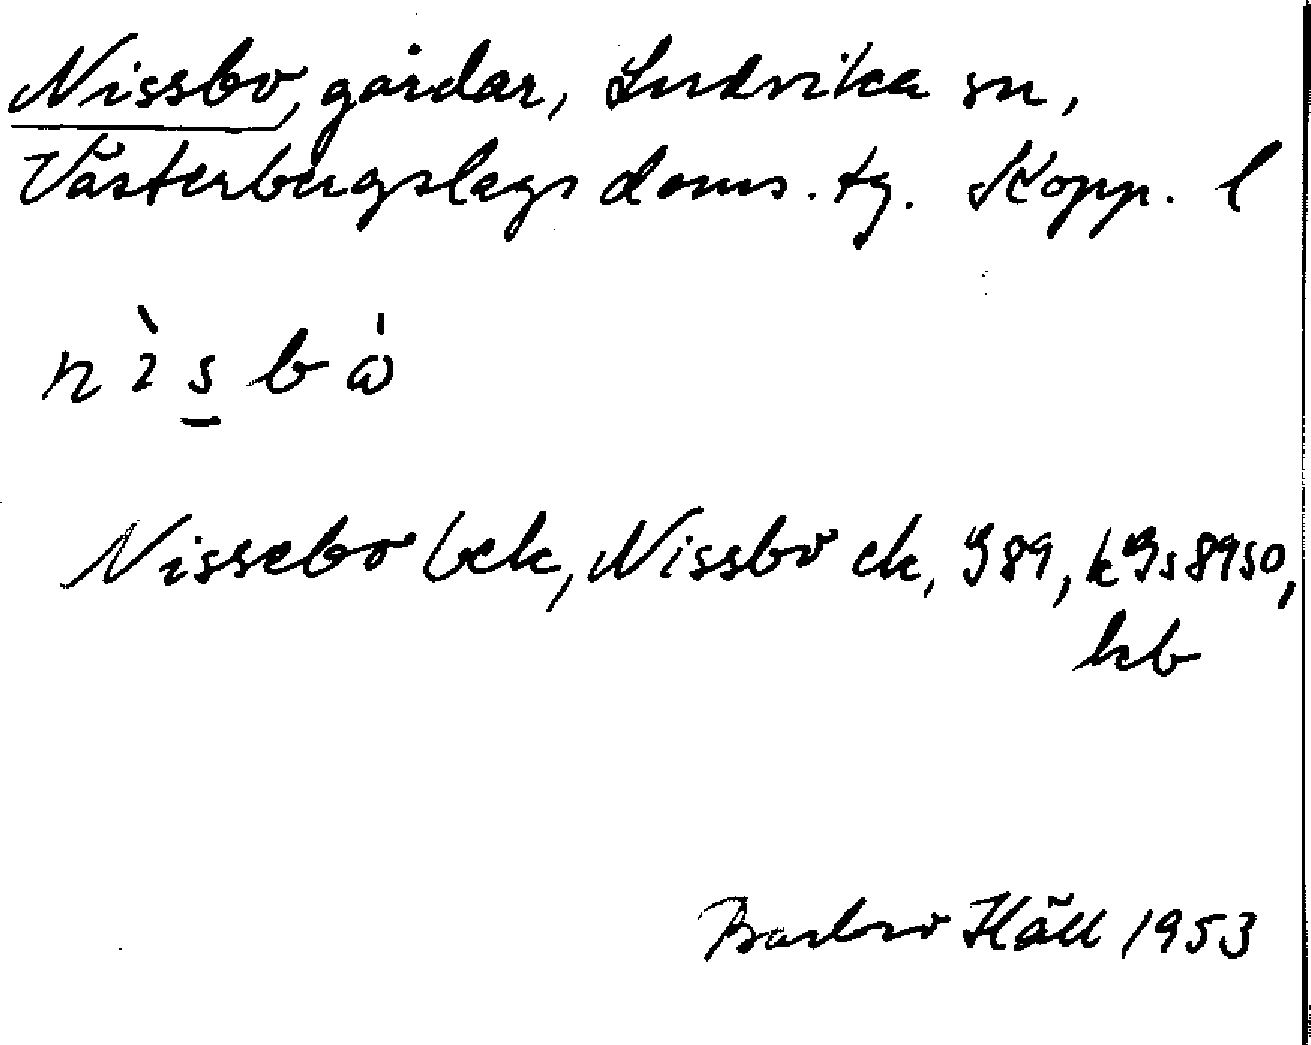 Nissbo, gårdar, Ludvika sn,
Västerbergslags doms. tg. Kopp. l
nìs̲bɷ̀
Nissebo bek, Nissbo ek, G 89, kGs 8950,
kb
Häll 1953